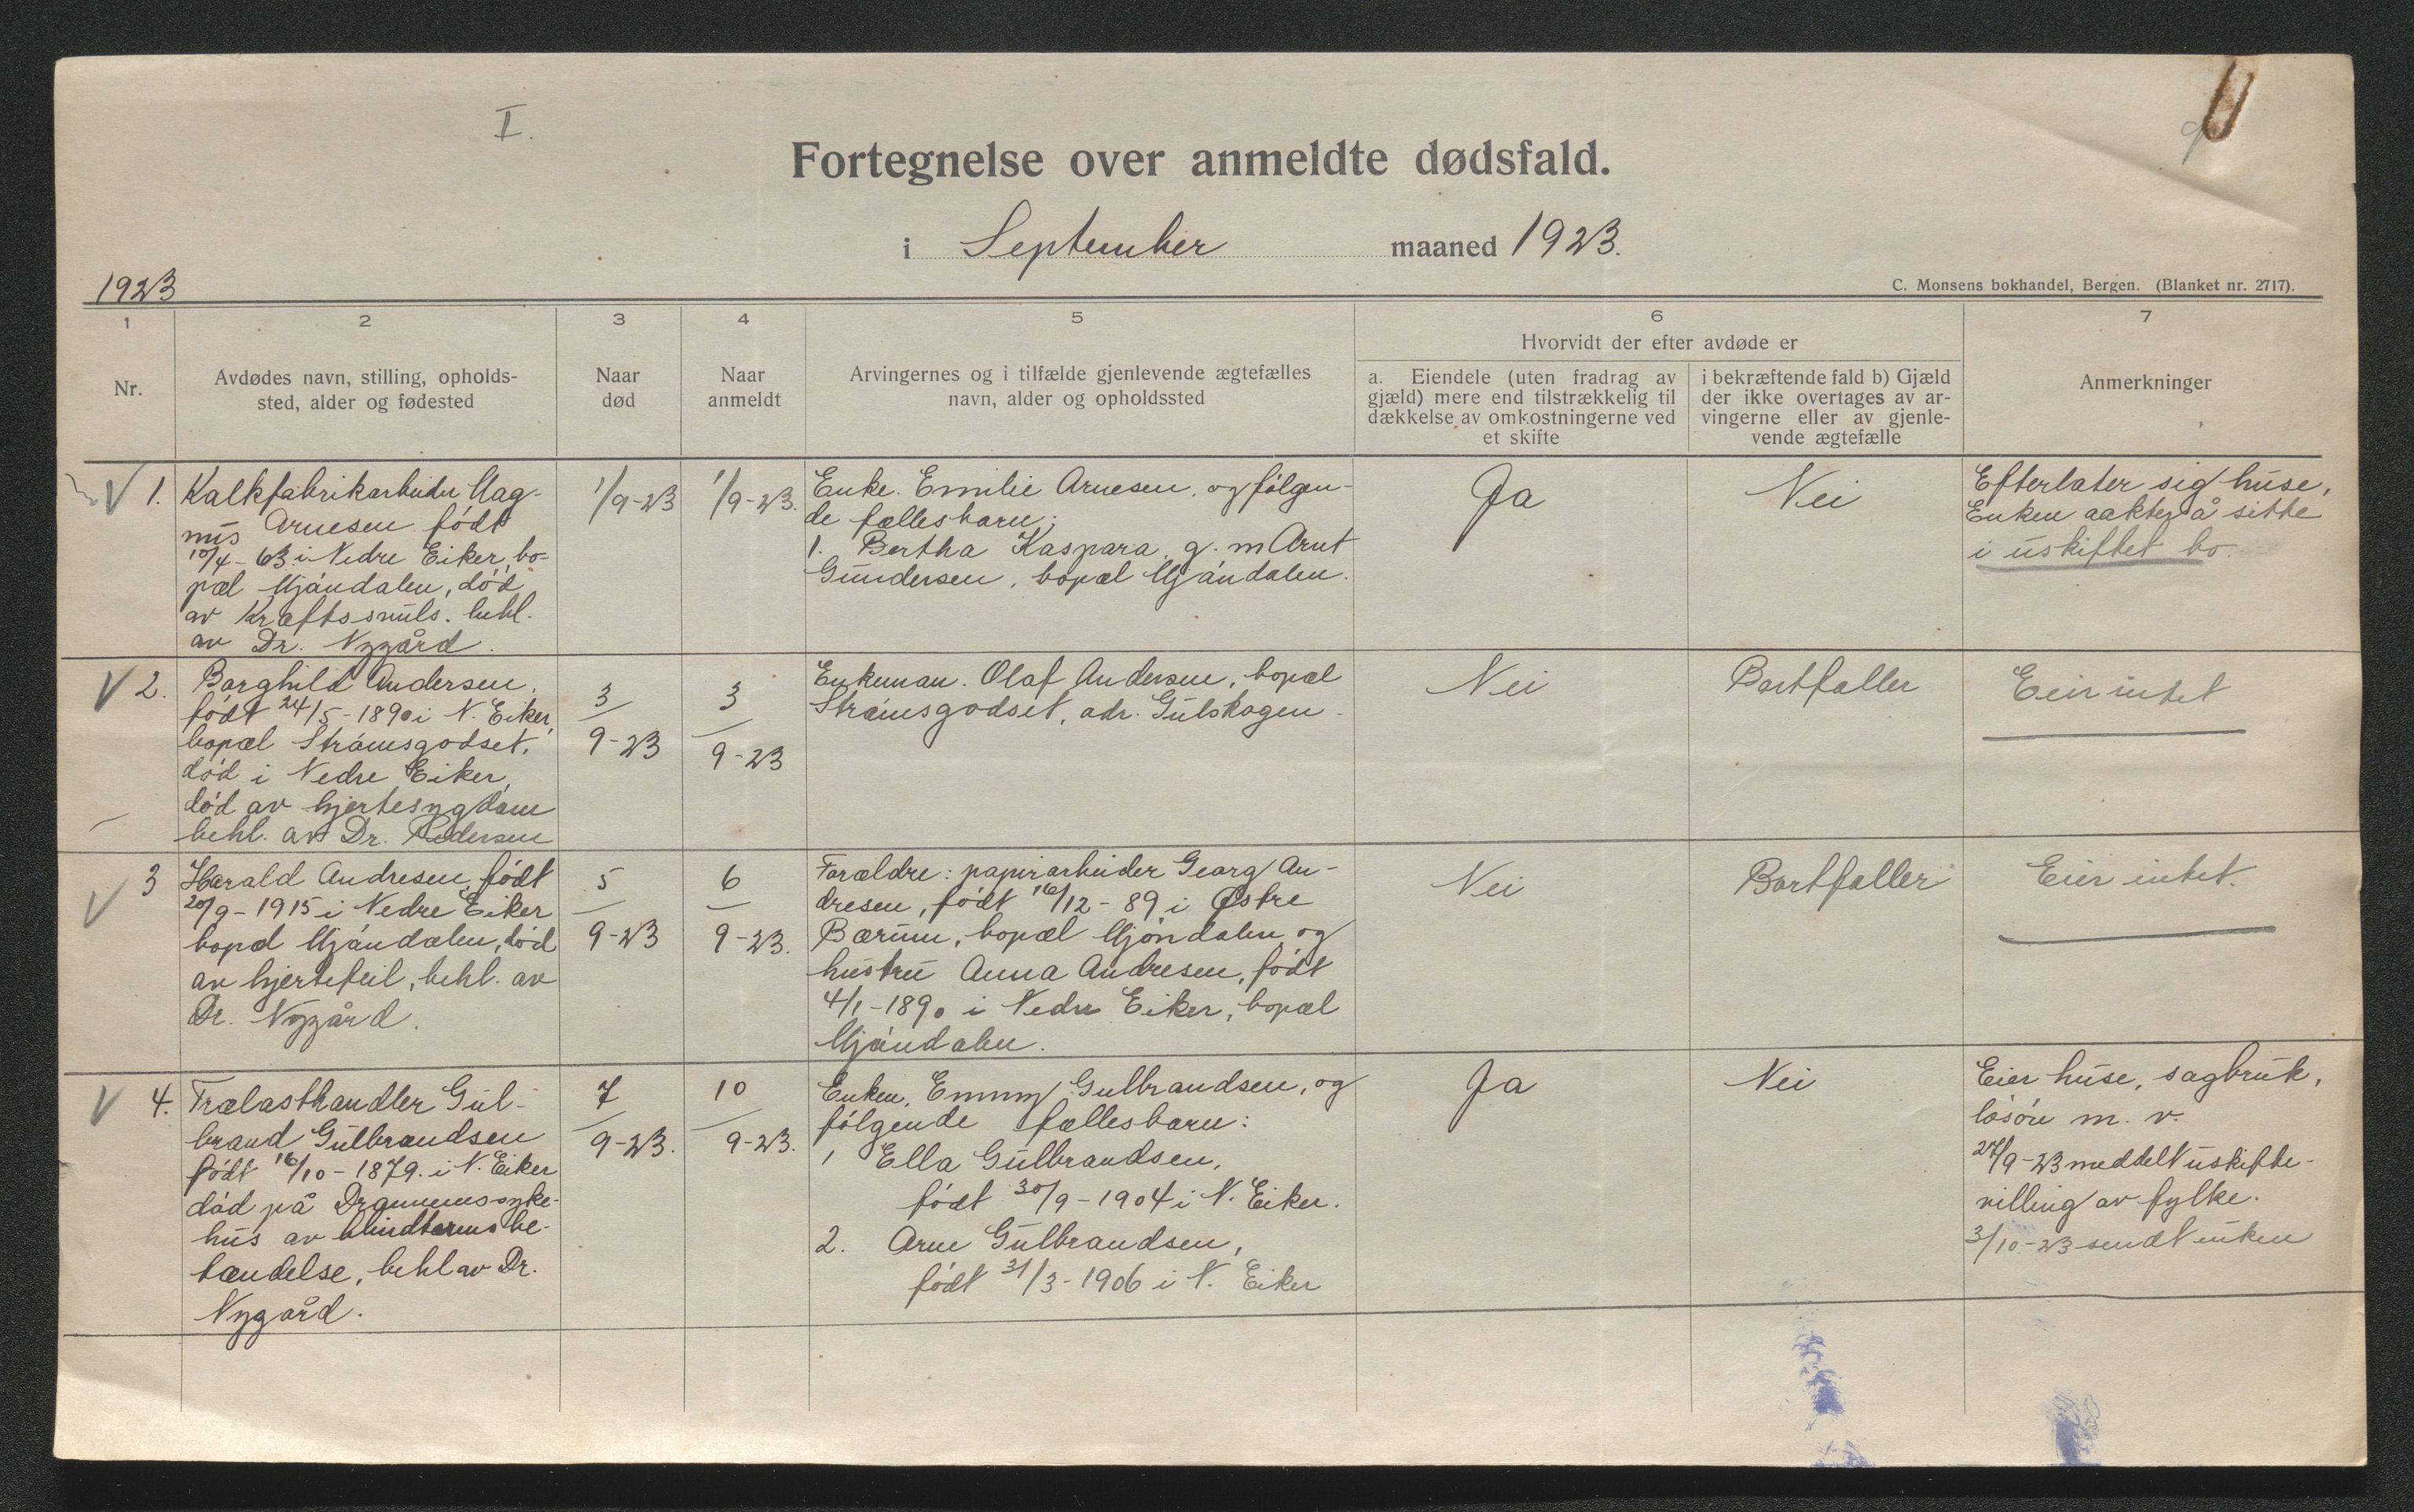 I.
Fortegnelse over anmeldte dødsfald.
i September maaned 1923.
1923
C. Monsens bokhandel, Bergen. (Blanket nr. 2717).
1
2
3
4
5
6
7
Nr.
Avdødes navn, stilling, opholds-
sted, alder og fødested
Naar
død
Naar
anmeldt
Arvingernes og i tilfælde gjenlevende ægtefælles
navn, alder og opholdssted
Hvorvidt der efter avdøde er
a. Eiendele (uten fradrag av
gjæld) mere end tilstrækkelig til
dækkelse av omkostningerne ved
et skifte
i bekræftende fald b) Gjæld
der ikke overtages av ar-
vingerne eller av gjenle-
vende ægtefælle
Anmerkninger
1.
Kalkfabrikarbeider Mag-
nus Arnesen født
10/4-63 i Nedre Eiker, bo-
pæl Mjöndalen, död
av Kræftssvuls. behl.
av Dr. Nygård.
1/9-23
1/9-23.
Enke. Emilie Arnesen, og følgen-
de fællesbarn;
1. Bertha Kaspara, g. m Arnt
Gundersen, bopæl Mjöndalen.
Ja
Nei
Efterlater sig huse,
Enken aakter å sitte
i uskiftet bo.
2.
Borghild Andersen,
født 24/5-1890 i N. Eiker,
bopæl Strömsgodset,
död i Nedre Eiker,
död av hjertesygdom
behl. av Dr. Pedersen
3/9-23
3/9-23
Enkeman. Olaf Andersen, bopæl
Strömsgodset, adr. Gulskogen
Nei
Bortfaller
Eier intet
3
Harald Andresen, født
20/9-1915 i Nedre Eiker
bopæl Mjöndalen, död
av hjertefeil, behl. av
Dr. Nygård.
5/9-23
6/9-23.
Forældre: papirarbeider Georg An-
dresen, født 16/12-89 i Østre
Bærum, bopæl Mjöndalen og
hustru Anna Andresen, født
4/1-1890 i Nedre Eiker, bopæl
Mjöndalen.
Nei
Bortfaller
Eier intet.
4.
Trælasthandler Gul-
brand Gulbrandsen
født 16/10-1879. i N. Eiker
död på Drammens syke-
hus av blindtarmsbe-
tændelse, behl av Dr.
Nygård.
7/9-23.
10/9-23.
Enken, Emmy Gulbrandsen, og
følgende fællesbarn:
1 Ella Gulbrandsen,
født 30/9-1904 i N. Eiker.
2. Arne Gulbrandsen,
født 31/3-1906 i N. Eiker
Ja
Nei
Eier huse, sagbruk,
lösöre m. v.
27/9-23 meddelt uskifte-
villing av fylke.
3/10-23 sendt enken